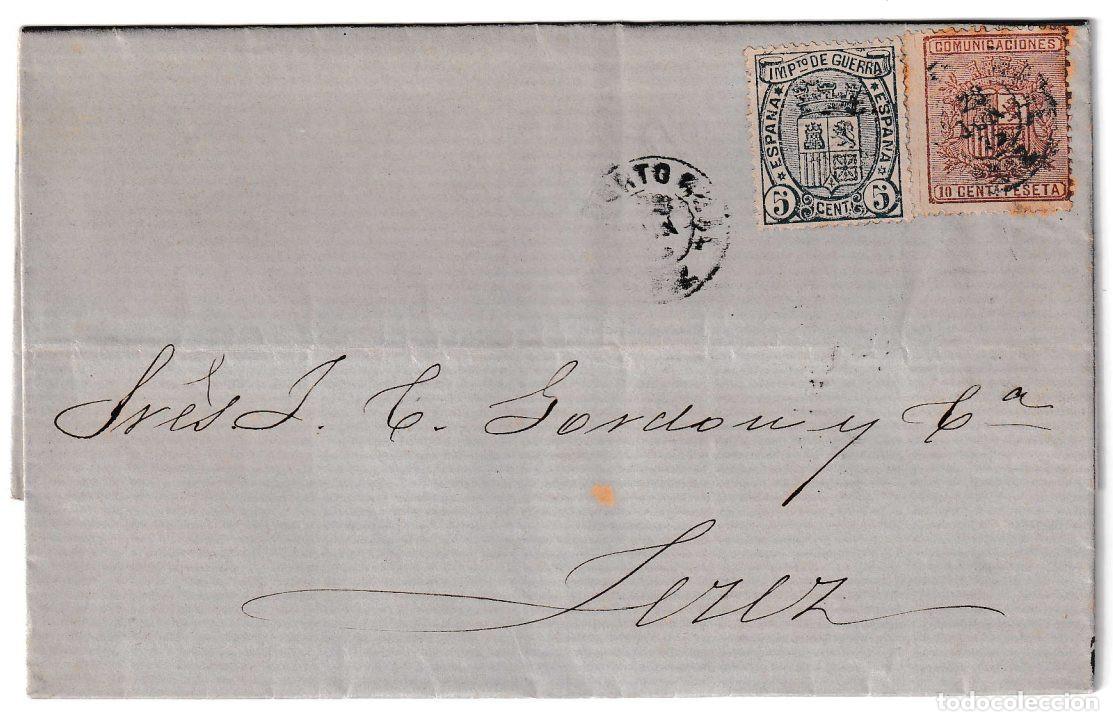 IMPTO DE GUERRA
ESPAÑA
ESPAÑA
5 CENT. 5
COMUNICACIONES
10 CENT. PESETA
Srès. J. C. Gordon y Cª
Jerez
todocoleccion